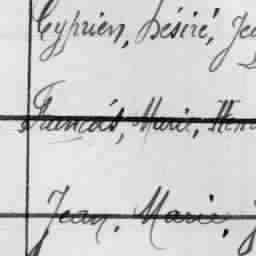 Cyprien, Désiré, Je
François, Marie, Hen
Jean, Marie, J